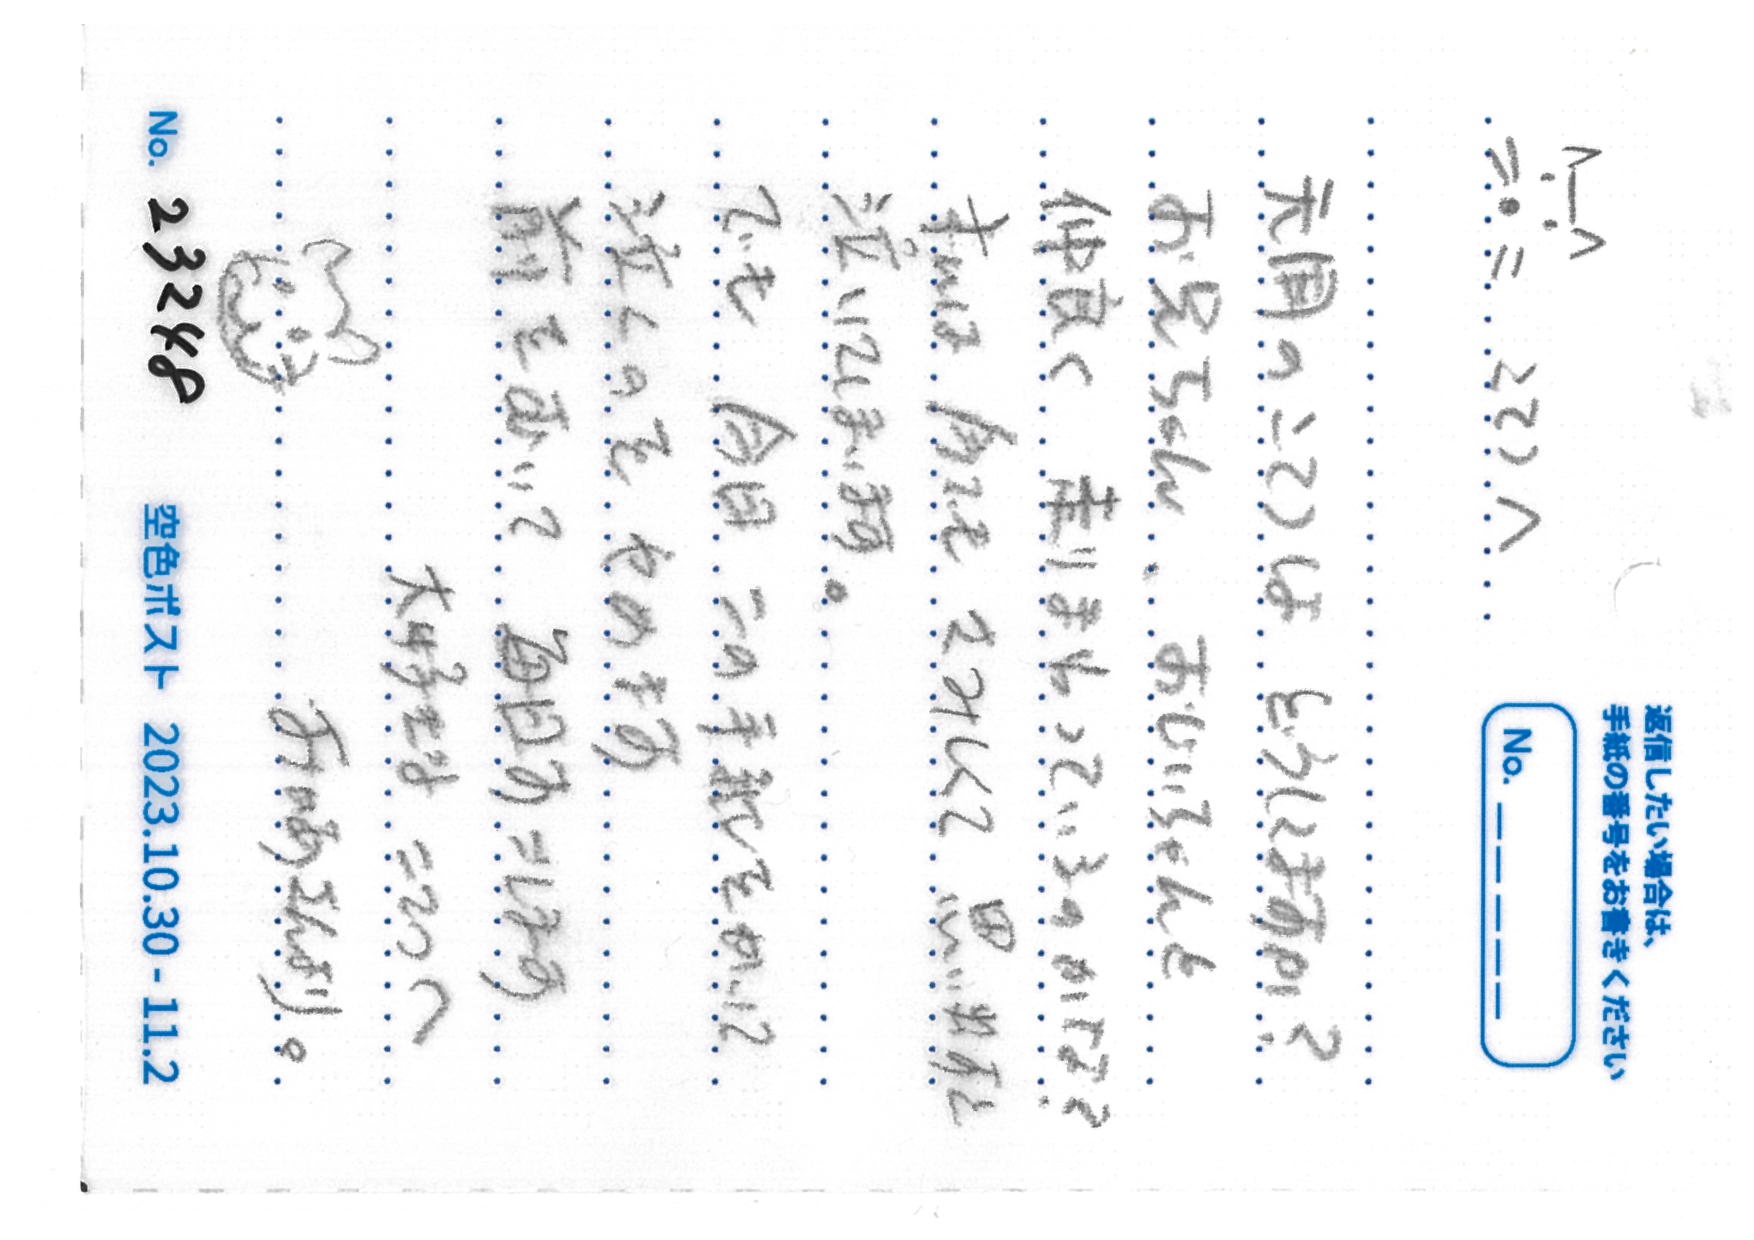 返信したい場合は、
手紙の番号をお書きください
No. _ _ _ _ _
こてつへ
天国のこてつは どうしてますか?
お兄ちゃん、おじいちゃんと
仲良く 走りまわっているのかなぁ?
私は 今でも さみしくて 思い出すと
泣いてしまいます。
でも 今日 この手紙をかいて
泣くのを やめます
前をむいて 毎日すごします
大好きな こてつへ
おかあさんより。
No. 23248
空色ポスト 2023.10.30 - 11.2